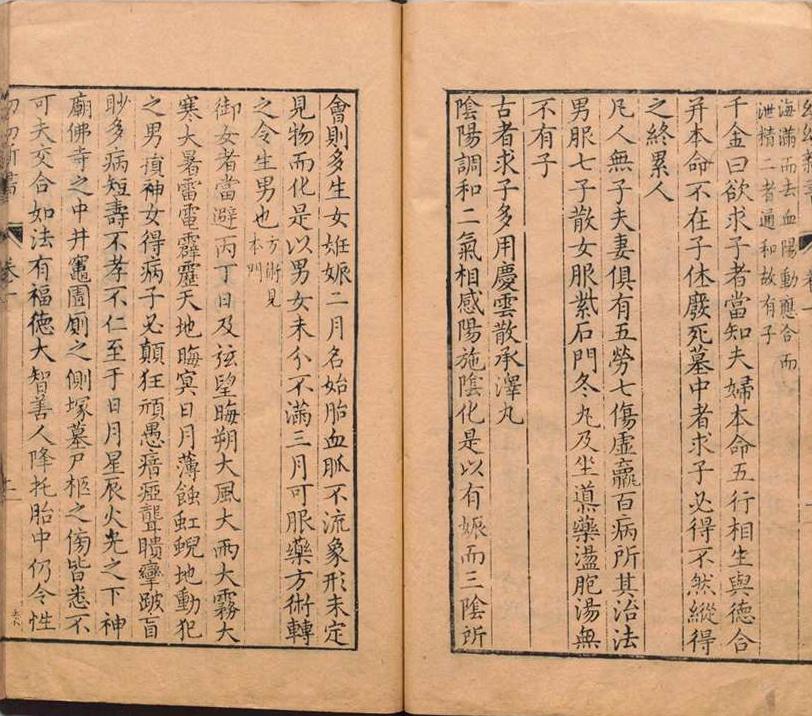 海滿而去血陽動應合而
泄精二者通和故有子
千金曰欲求子者當知夫婦本命五行相生與德合
并本命不在子休廢死墓中者求子必得不然縱得
之終累人
凡人無子夫妻俱有五勞七傷虛羸百病所其治法
男服七子散女服紫石門冬丸及坐導藥盪胞湯無
不有子
古者求子多用慶雲散承澤丸
陰陽調和二氣相感陽施陰化是以有娠而三陰所
會則多生女姙娠二月名始胎血脈不流象形未定
見物而化是以男女未分不滿三月可服藥方術轉
之令生男也方術見
本門
御女者當避丙丁日及弦望晦朔大風大雨大霧大
寒大暑雷電霹靂天地晦冥日月薄蝕虹蜺地動犯
之男損神女得病子必顛狂頑愚瘖瘂聾聵攣跛盲
眇多病短壽不孝不仁至于日月星辰火光之下神
廟佛寺之中井竈圊廁之側塚墓尸柩之傍皆悉不
可夫交合如法有福德大智善人降托胎中仍令性
卷一